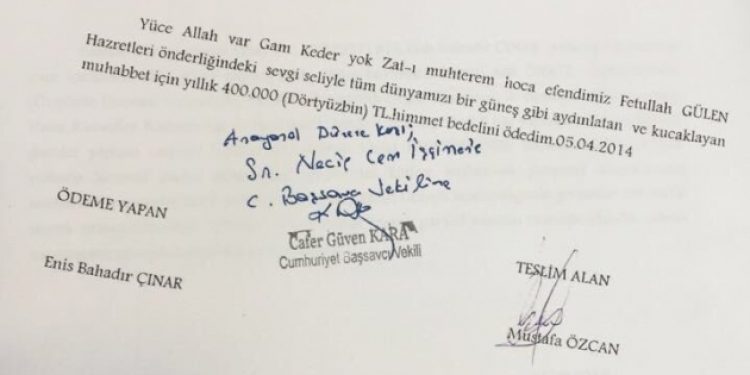 Yüce Allah var Gam Keder yok Zat-ı muhterem hoca efendimiz Fetullah GÜLEN
Hazretleri önderliğindeki sevgi seliyle tüm dünyamızı bir güneş gibi aydınlatan ve kucaklayan
muhabbet için yıllık 400.000 (Dörtyüzbin) TL.himmet bedelini ödedim.05.04.2014
Anayasal Düzene Karşı
Sn. Necip Cem İşçimen'e
C. Başsavcı Vekiline
Cafer Güven KARA
Cumhuriyet Başsavcı Vekili
ÖDEME YAPAN
Enis Bahadır ÇINAR
TESLİM ALAN
Mustafa ÖZCAN